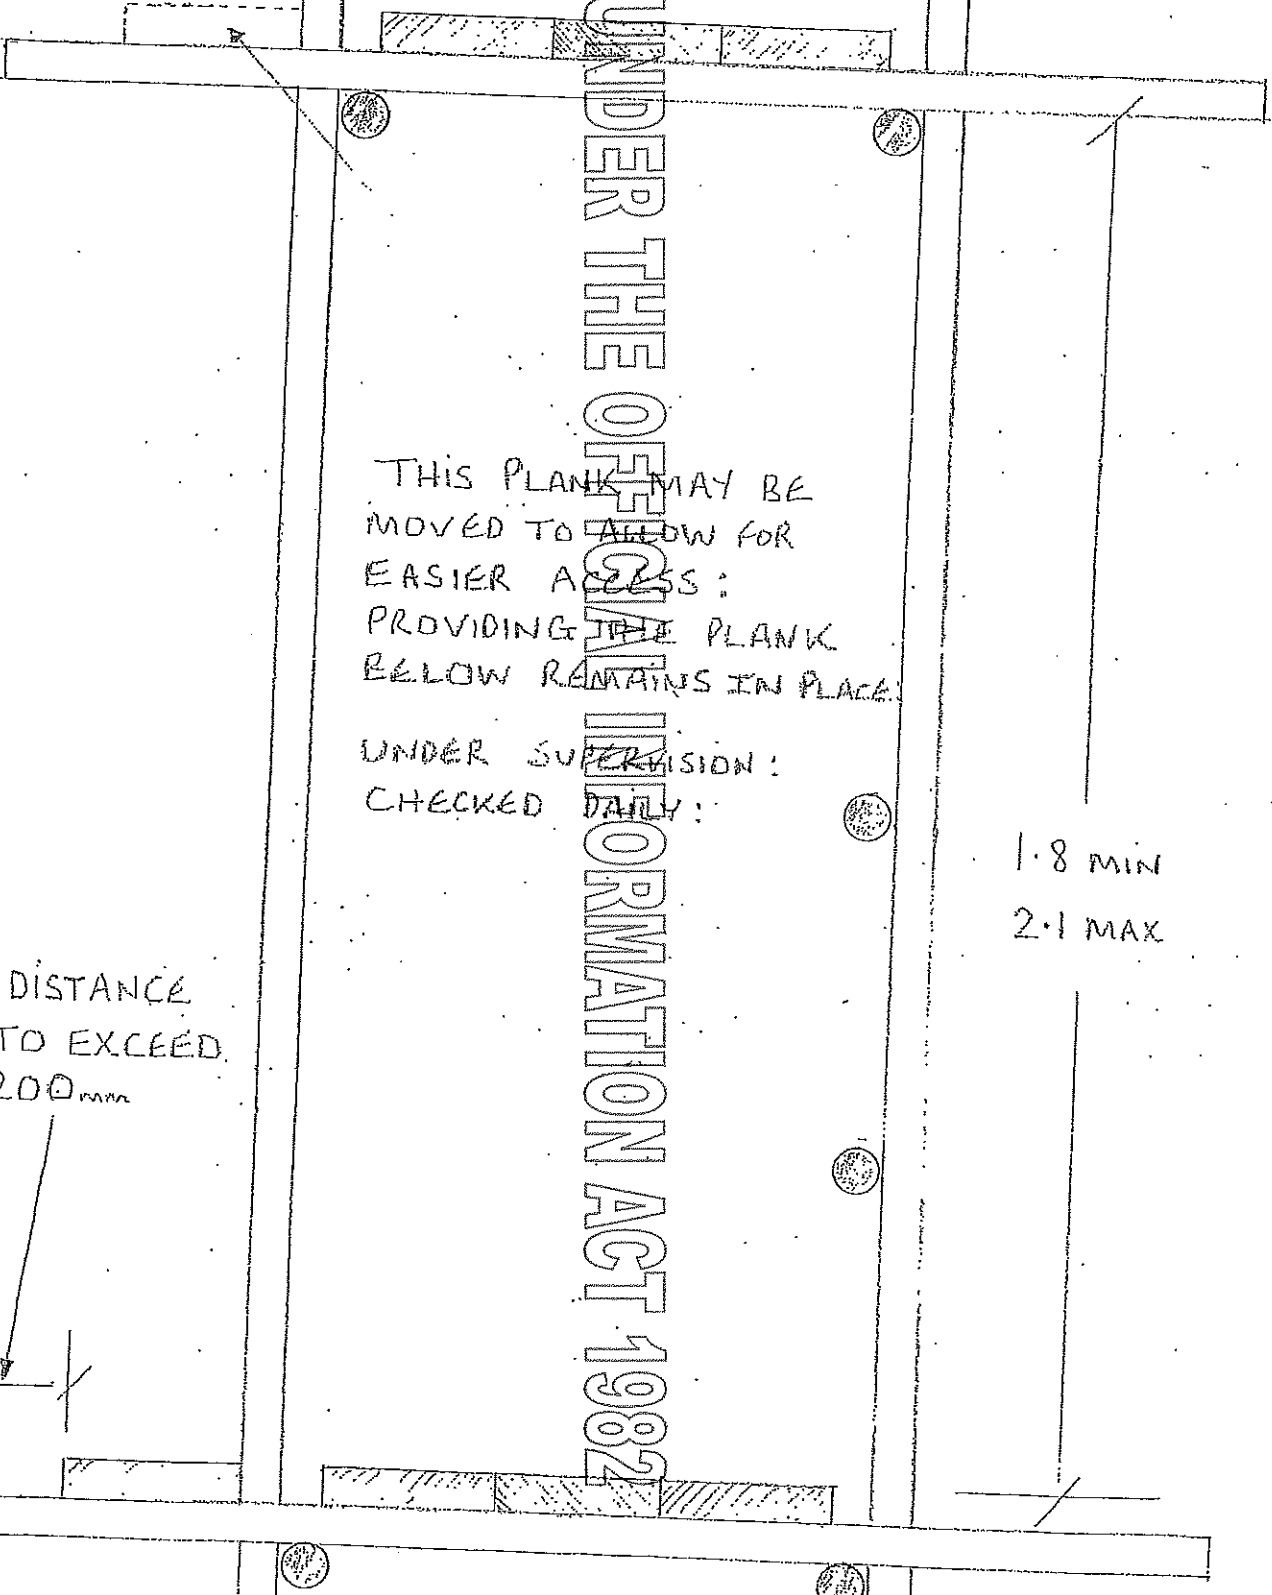 UNDER THE OFFICIAL INFORMATION ACT 1982
THIS PLANK MAY BE
MOVED TO ALLOW FOR
EASIER ACCESS:
PROVIDING THE PLANK
BELOW REMAINS IN PLACE:
UNDER SUPERVISION:
CHECKED DAILY:
1.8 MIN
2.1 MAX
DISTANCE
TO EXCEED
200mm